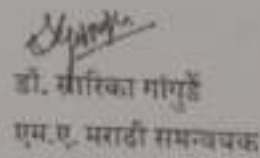 डॉ. सारिका गांगुर्डे
एम.ए. मराठी समन्वयक